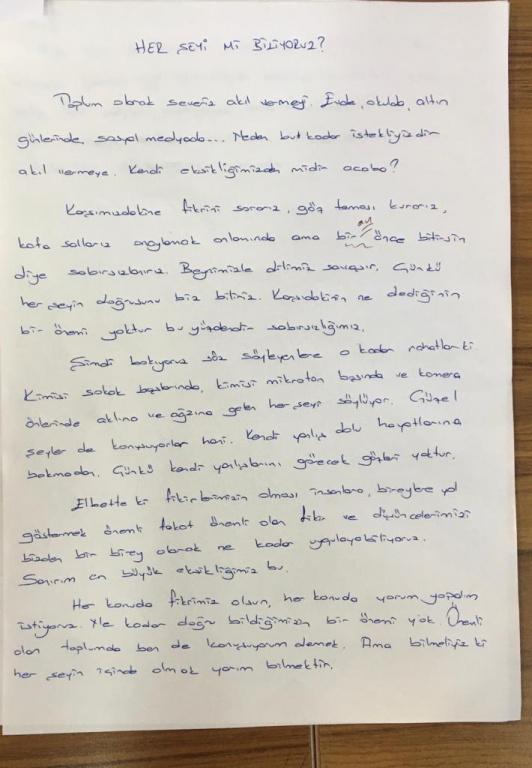 HER ŞEYİ Mİ BİLİYORUZ?
Toplum olarak severiz akıl vermeyi. Evde, okulda, altın
günlerinde, sosyal medyada... Neden bu kadar istekliyizdir
akıl vermeye. Kendi eksikliğimizden midir acaba?
Karşımızdakine fikrini sorarız, göz teması kurarız,
kafa sallarız onaylamak anlamında ama bir an önce bitirsin
diye sabırsızlanırız. Beynimizle dilimiz savaşır. Çünkü
her şeyin doğrusunu biz biliriz. Karşıdakinin ne dediğinin
bir önemi yoktur bu yüzdendir sabırsızlığımız.
Şimdi bakıyoruz söz söyleyenlere o kadar rahatlar ki
Kimisi sokak başlarında, kimisi mikrofon başında ve kamera
önlerinde aklına ve ağzına gelen her şeyi söylüyor. Güzel
şeyler de konuşuyorlar hani. Kendi yanlış dolu hayatlarına
bakmadan. Çünkü kendi yanlışlarını görecek gözleri yoktur.
Elbette ki fikirlerimizin olması insanlara, bireylere yol
göstermek önemli fakat önemli olan fikir ve düşüncelerimizi
bizden bir birey olarak ne kadar uygulayabiliyoruz.
Sanırım en büyük eksikliğimiz bu.
Her konuda fikrimiz olsun, her konuda yorum yapalım
istiyoruz. Ne kadar doğru bildiğimizin bir önemi yok. Önemli
olan toplumda ben de konuşuyorum demek. Ama bilmeliyiz ki
her şeyin içinde olmak yarım bilmektir.